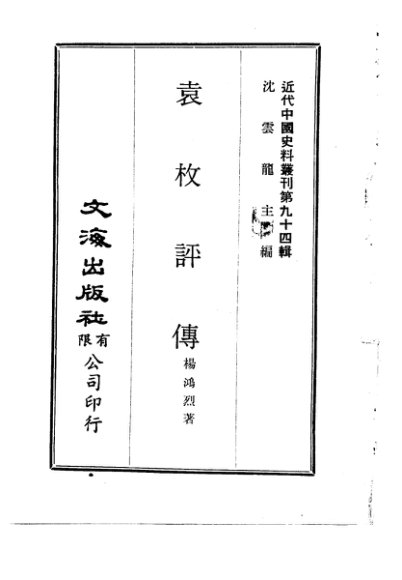 近代中國史料叢刊第九十四輯
沈雲龍主編
袁枚評傳
楊鴻烈著
文海出版社有限公司印行